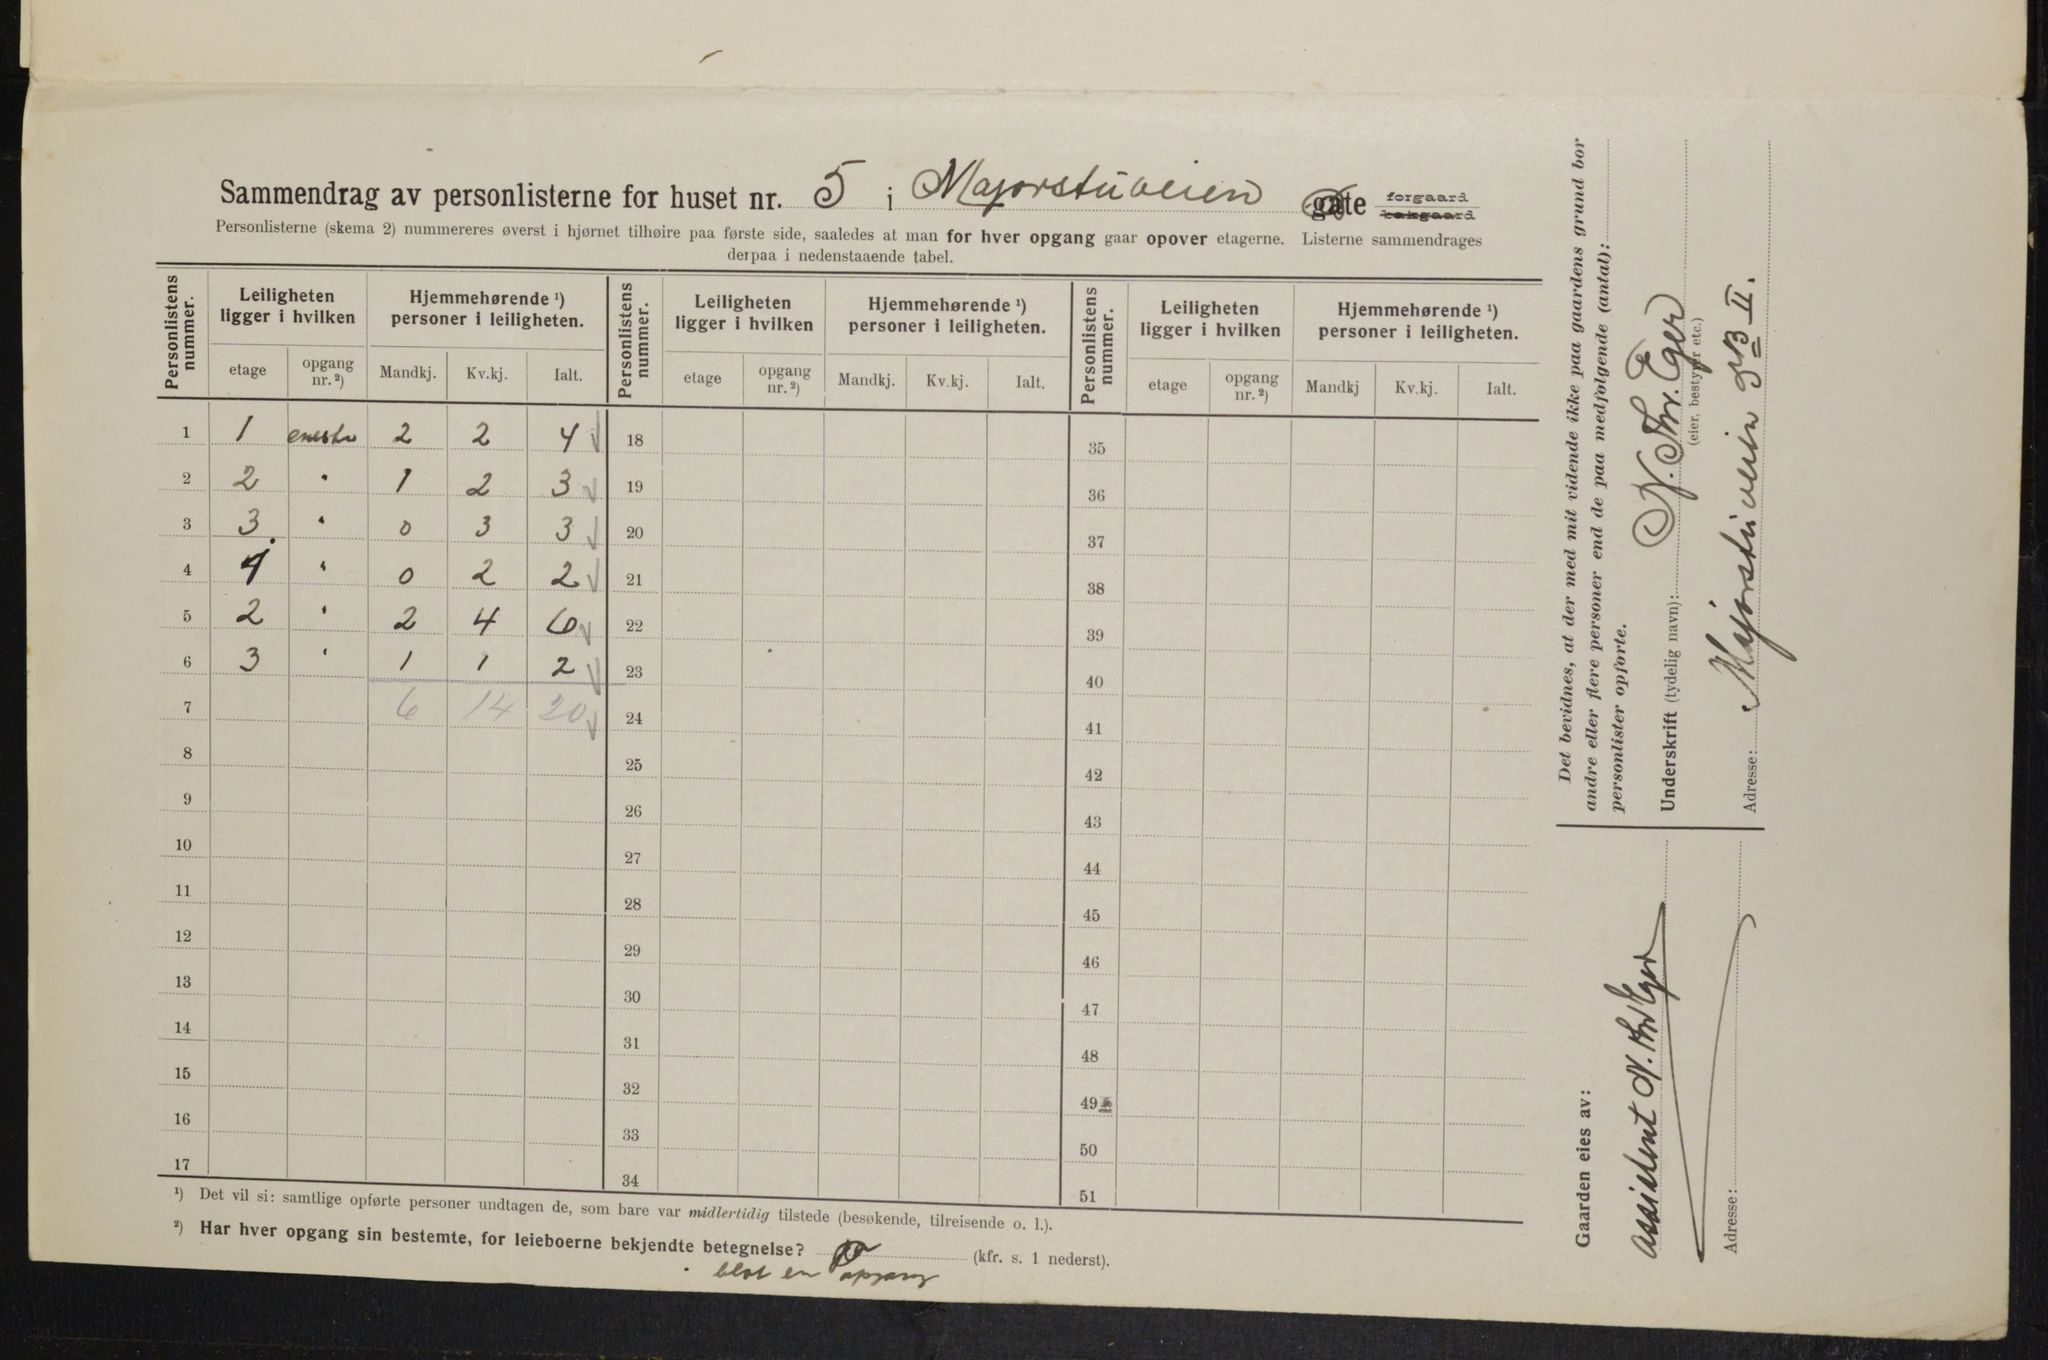 Sammendrag av personlisterne for huset nr. 5 i Majorstuveien gate forgaard bakgaard
Personlisterne (skema 2) nummereres øverst i hjørnet tilhøire paa første side, saaledes at man for hver opgang gaar opover etagerne. Listerne sammendrages
derpaa i nedenstaaende tabel.
Personlistens nummer. Leiligheten ligger i hvilken Hjemmehørende ¹) personer i leiligheten. Personlistens nummer. Leiligheten ligger i hvilken Hjemmehørende ¹) personer i leiligheten. Personlistens nummer. Leiligheten ligger i hvilken Hjemmehørende ¹) personer i leiligheten.
etage opgang nr. ²) Mandkj. Kv.kj. Ialt. etage opgang nr. ²) Mandkj. Kv.kj. Ialt. etage opgang nr. ²) Mandkj Kv.kj. Ialt.
1 1 2 2 4 18 35
2 2 " 1 2 3 19 36
3 3 " 0 3 3 20 37
4 4 " 0 2 2 21 38
5 2 " 2 4 6 22 39
6 3 " 1 1 2 23 40
7 6 14 20 24 41
8 25 42
9 26 43
10 27 44
11 28 45
12 29 46
13 30 47
14 31 48
15 32 49
16 33 50
17 34 51
¹) Det vil si: samtlige opførte personer undtagen de, som bare var midlertidig tilstede (besøkende, tilreisende o. l.).
²) Har hver opgang sin bestemte, for leieboerne bekjendte betegnelse? (kfr. s. 1 nederst).
blot en opgang
Det bevidnes, at der med mit vidende ikke paa gaardens grund bor
andre eller flere personer end de paa medfølgende (antal):
personlister opførte.
Underskrift (tydelig navn): N. Thr. Eger
(eier, bestyrer etc.)
Adresse: Majorstuveien 3B II.
Gaarden eies av:
Assistent N. Thr Eger
Adresse: